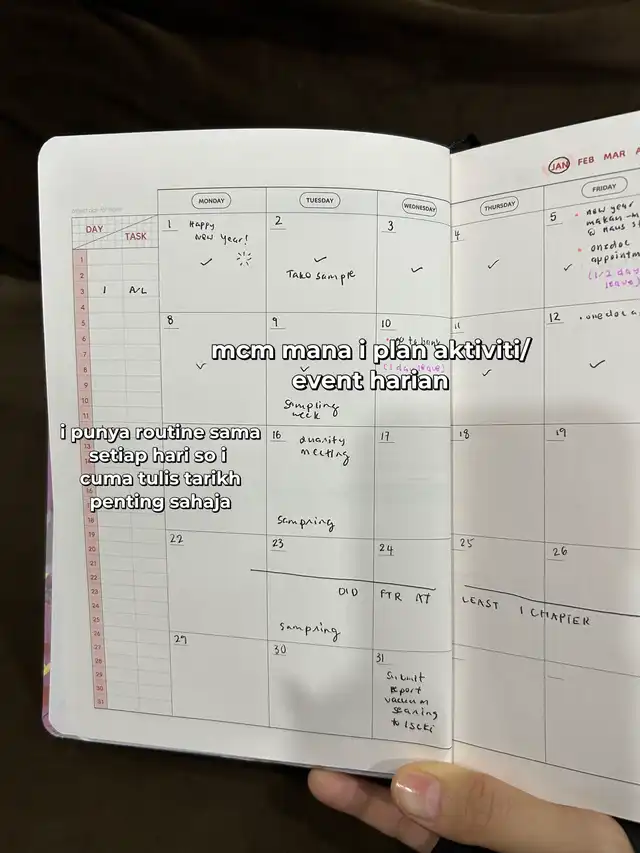 JAN FEB MAR
MONDAY
TUESDAY
WEDNESDAY
THURSDAY
FRIDAY
DAY
TASK
1
2
3
4
5
6
7
8
9
10
11
18
19
20
21
22
23
24
25
26
27
28
29
30
31
1 A/L
1 Happy
New Year!
2
Take sample
3
4
5 new year
makan-m
@ naus s
onedoc
appointm
(1/2 day
leave)
8
9
Sampling
week
10
(1 day leave)
11
12 onedoc a
mcm mana i plan aktiviti/
event harian
i punya routine sama
setiap hari so i
cuma tulis tarikh
penting sahaja
16 quality
meeting
sampling
17
18
19
22
23
24
25
26
DID FTR AT LEAST 1 CHAPTER
sampling
29
30
31
Submit
report
vacuum
to